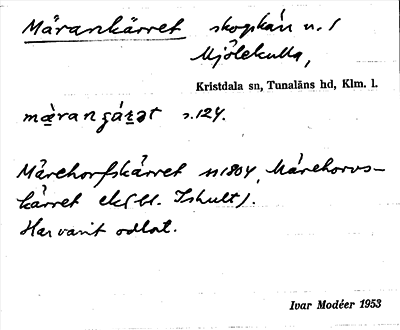 Märankärret skogskärr n. /
Mjölekulla,
Kristdala sn, Tunaläns hd, Klm. l.
s. 124.
Märehorfskärret 1804, Märehorvs-
kärret ek (bl. Ishult).
Har varit odlat.
Ivar Modéer 1953